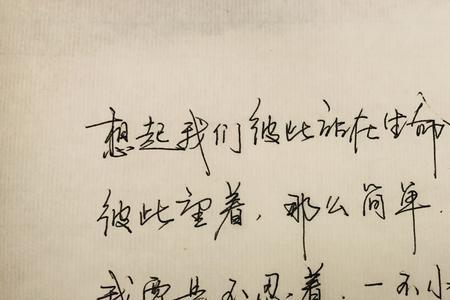 想起我们彼此站在生命
彼此望着,那么简单.
我要是不忍着.一不小